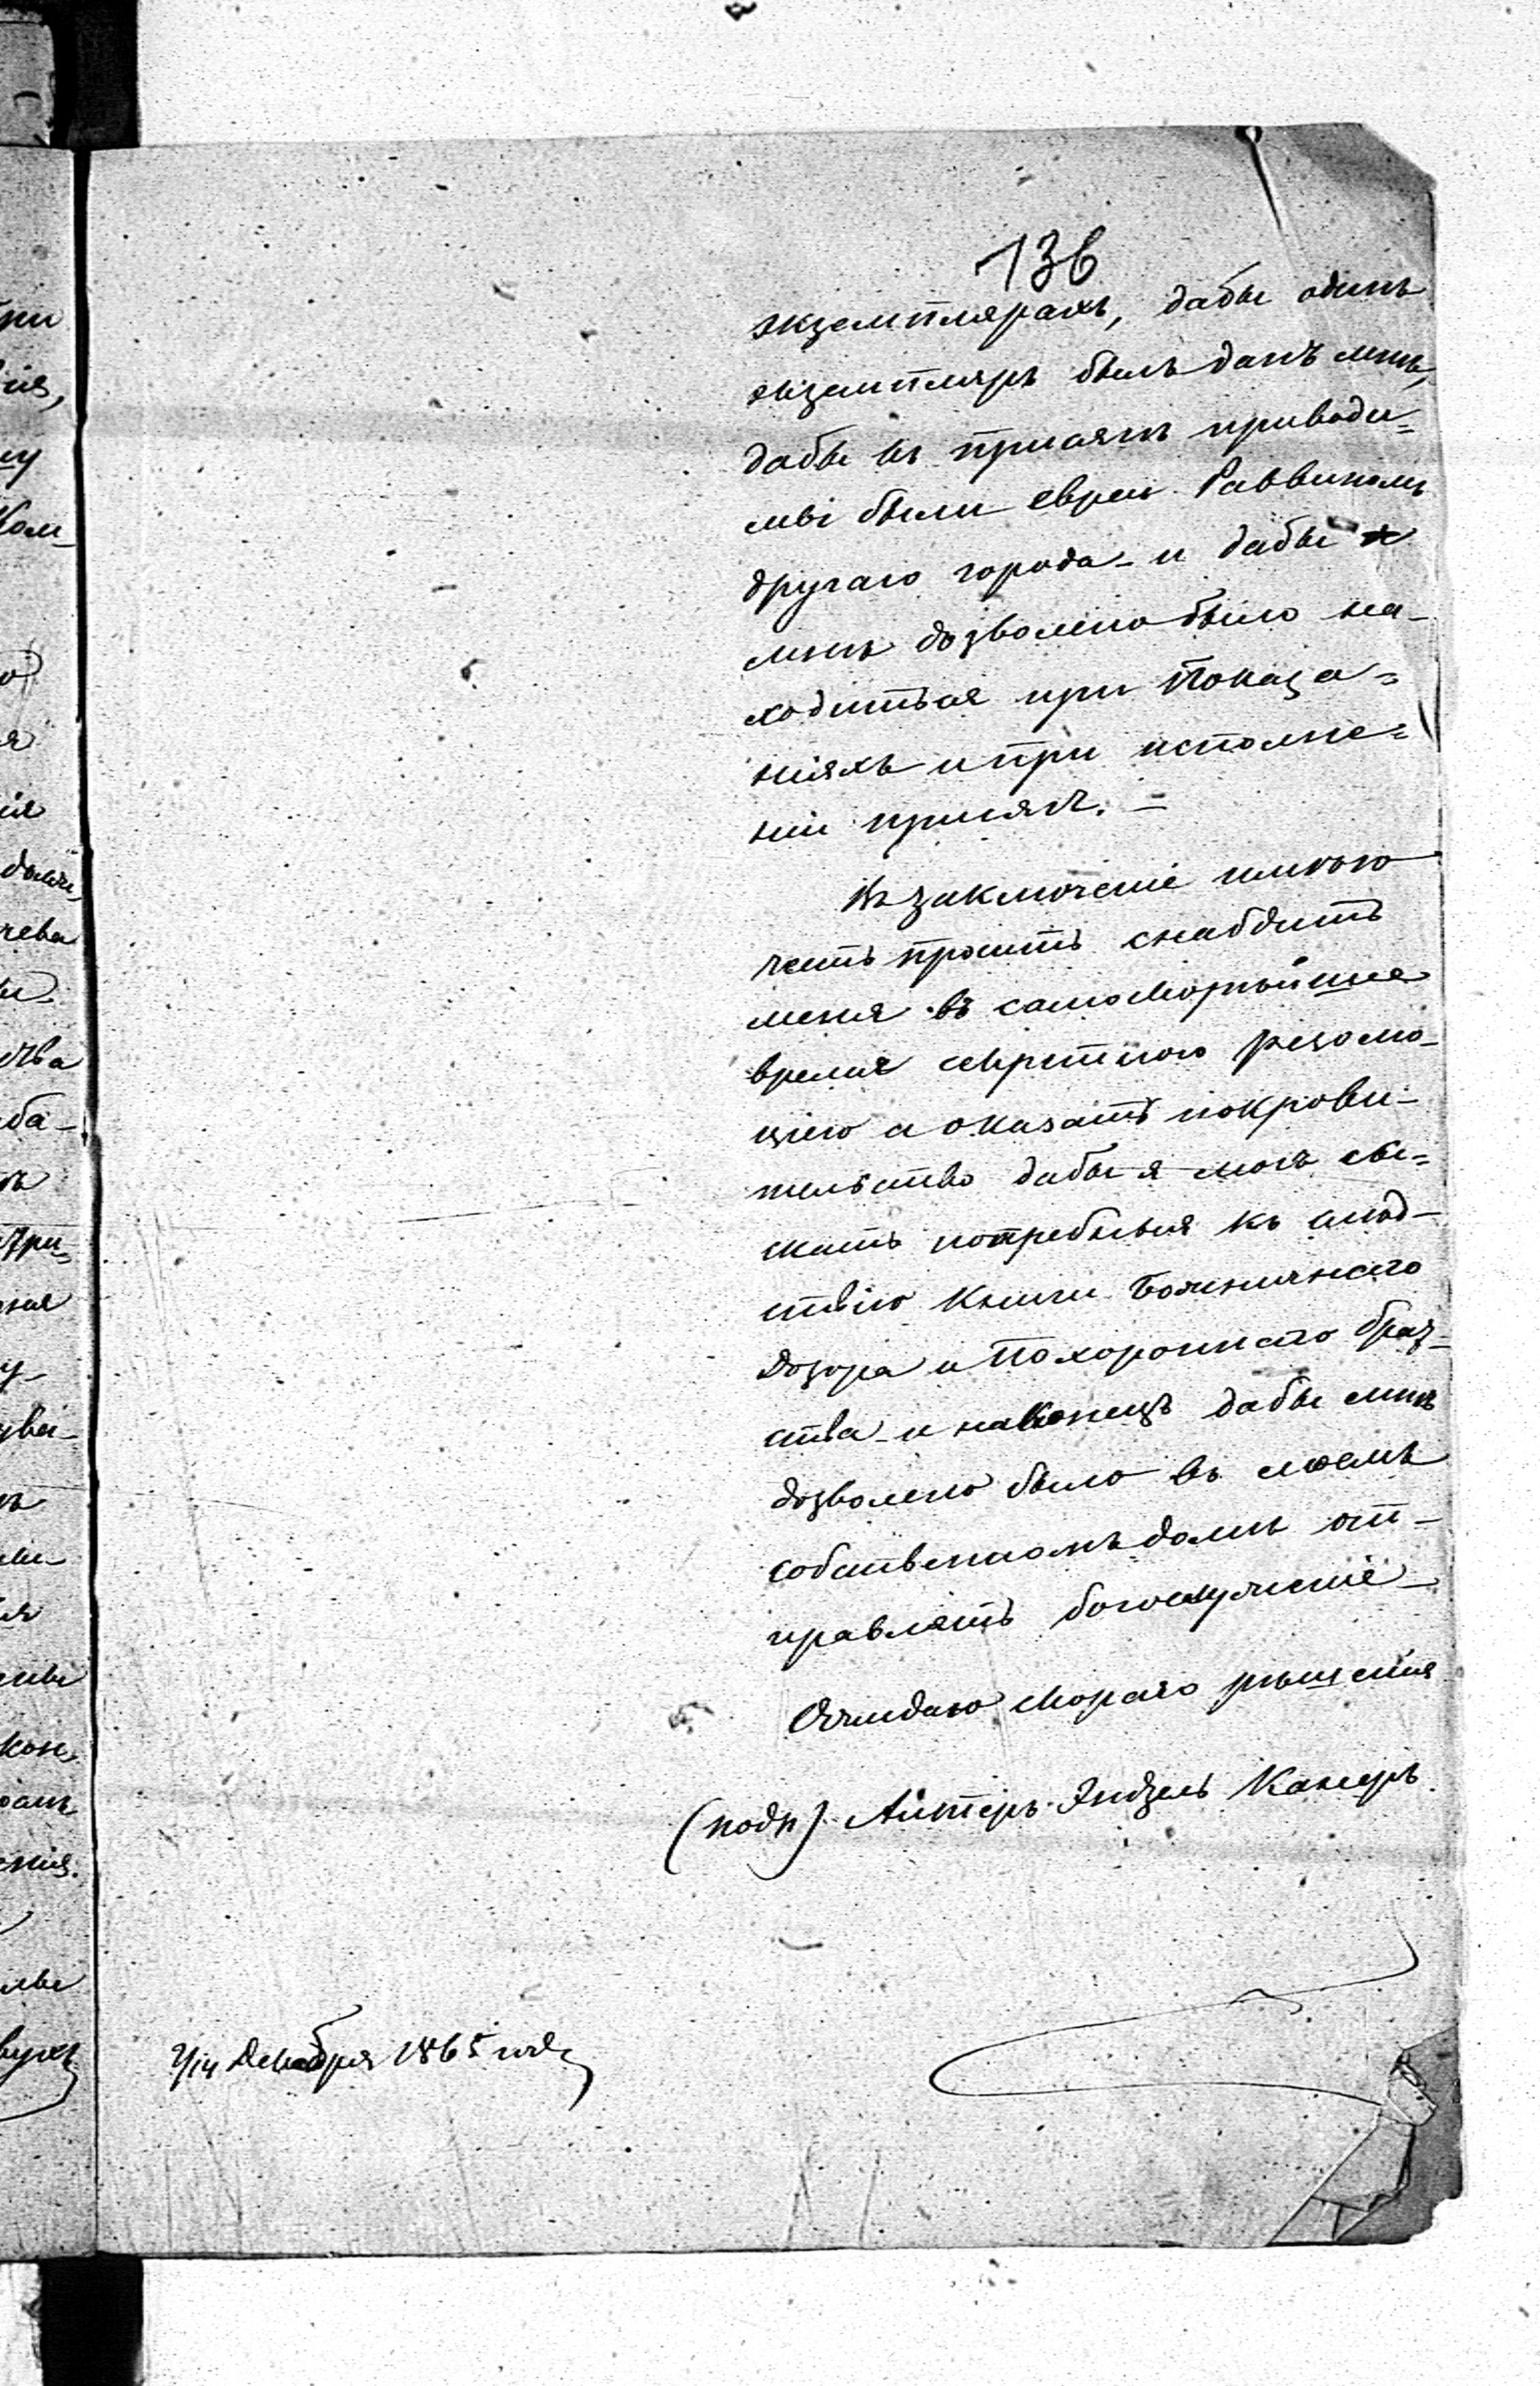 136
экземплярахъ, дабы одинъ
экземпляръ былъ данъ мнѣ,
дабы къ присягѣ приводи=
мы были евреи Раввиномъ
другаго города и дабы
мнѣ дозволено было на-
ходиться при показа=
ніяхъ и при исполне=
ніи присягъ. =
Въ заключеніе имѣю
честь просить снабдить
меня въ самоскорѣйшее
время секретною резолю-
ціею и оказать покрови-
тельство дабы я могъ сы=
скать потребныя къ слѣд-
ствію книги Божничнаго
дозора и Похороннаго брат-
ства и наконецъ дабы мнѣ
дозволено было въ моемъ
собственномъ домѣ от-
правлять богослуженіе
Ожидаю скораго рѣшенія
(подп) Айтеръ Энзель Канеръ
2/14 Декабря 1865 года